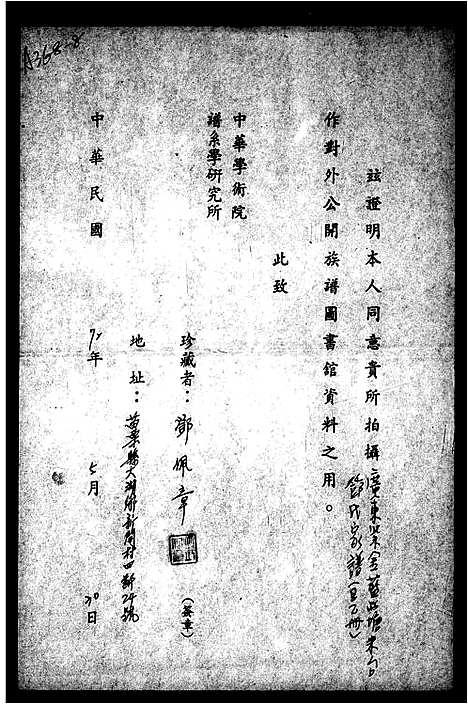 A368-8
茲證明本人同意貴所拍攝廣東紫金藍塘
鄧氏家譜
作對外公開族譜圖書館資料之用。
此致
中華學術院
譜系學研究所
珍藏者：鄧佩章（簽章）
地址：苗栗縣大湖鄉新開村四鄰24號
中華民國 年 5月 30日